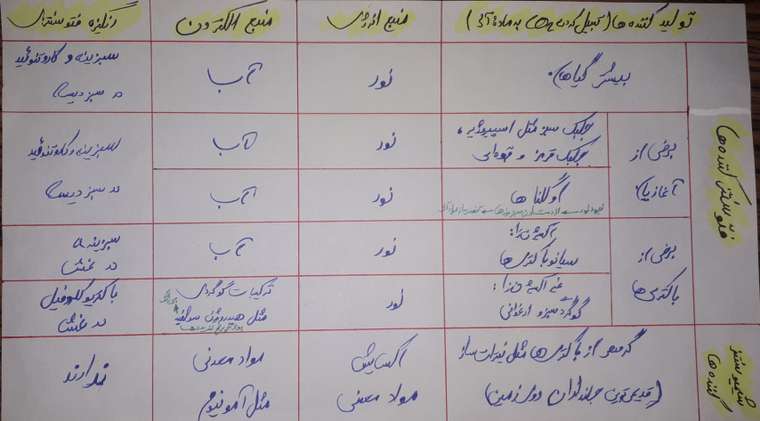 تولید کننده ها (تبدیل کردن co2 به مادهٔ آلی) منبع انرژی منبع الکترون رنگیزه فتوسنتزی
فتوسنتز کننده ها
بیشتر گیاهان نور آب سبزینه و کاروتنوئید
در سبز دیسه
برخی از
آغازیان
جلبک سبز مثل اسپیروژیر،
جلبک قرمز و قهوه‌ای
نور آب سبزینه و کاروتنوئید
در سبز دیسه
اوگلنا ها نور آب
برخی از
باکتری ها
اکسیژن زا:
سیانوباکتری ها
نور آب سبزینه a
در غشا
غیر اکسیژن زا:
گوگردی سبز و ارغوانی
نور ترکیبات گوگردی
مثل هیدروژن سولفید
باکتریوکلروفیل
در غشا
شیمیوسنتز
کننده ها
گروهی از باکتری ها مثل نیترات ساز
(قدیمی‌ترین جانداران روی زمین)
اکسایش
مواد معدنی
مواد معدنی
مثل آمونیوم
ندارند